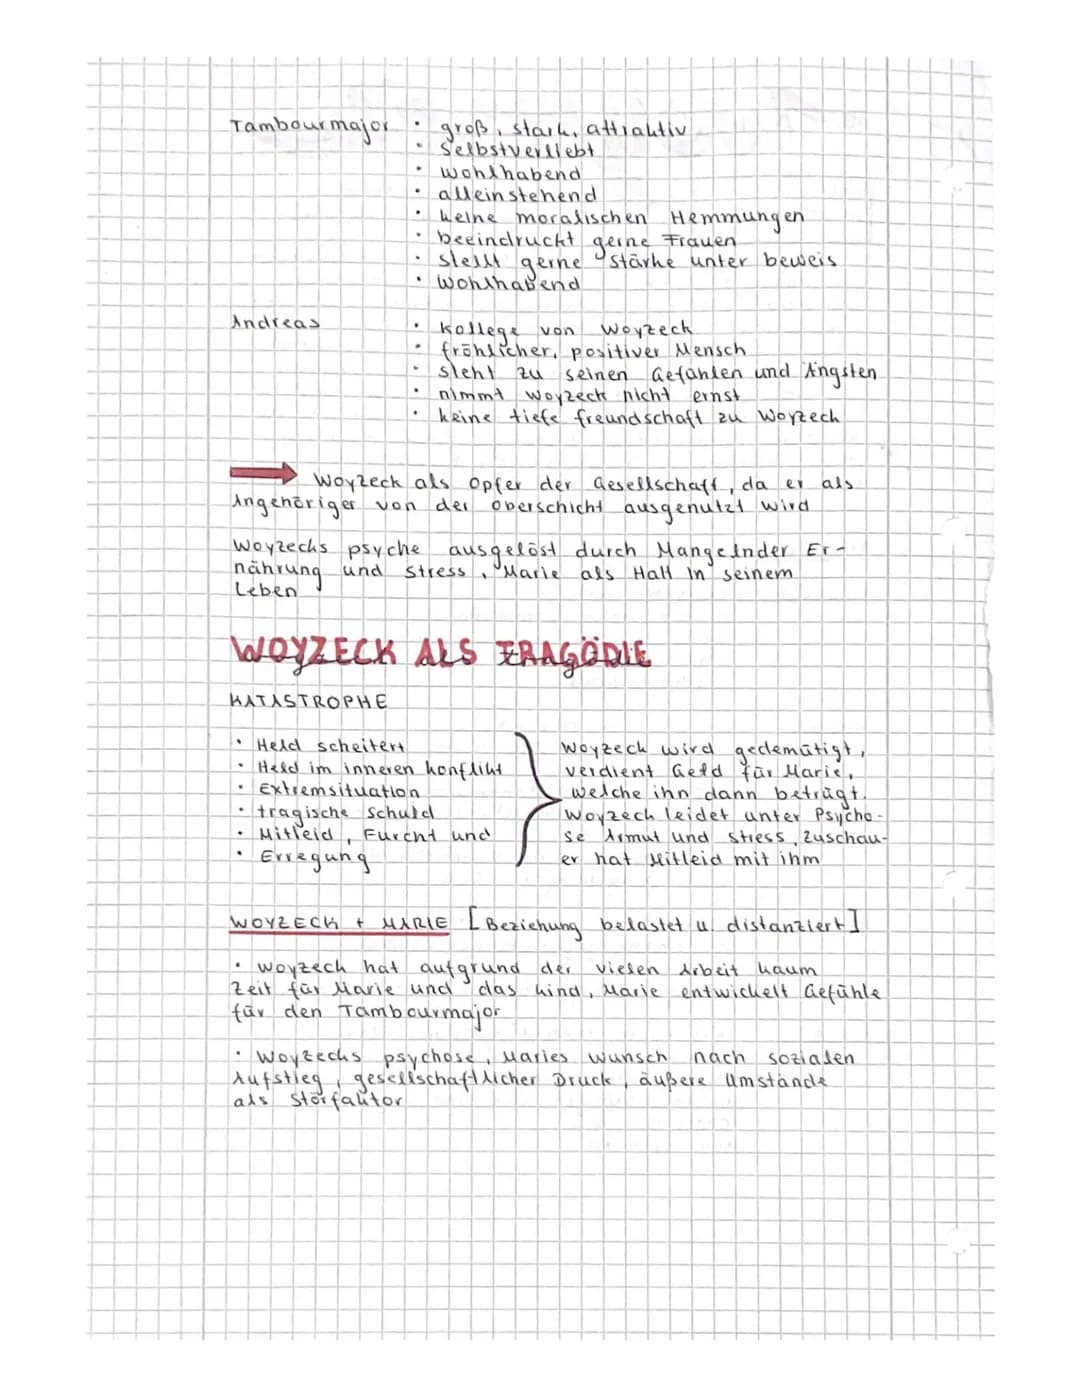 Tambourmajor • groß, stark, attraktiv
• selbstverliebt
• wohlhabend
• alleinstehend
• keine moralischen Hemmungen
• beeindruckt gerne Frauen
• stellt gerne Stärke unter beweis
• wohlhabend
Andreas • Kollege von Woyzeck
• fröhlicher, positiver Mensch
• steht zu seinen Gefühlen und Ängsten
• nimmt Woyzeck nicht ernst
• keine tiefe freundschaft zu Woyzeck
→ Woyzeck als Opfer der Gesellschaft, da er als
Angehöriger von der Oberschicht ausgenutzt wird
Woyzecks psyche ausgelöst durch Mangelnder Er-
nährung und Stress, Marie als Halt in seinem
Leben
WOYZECK ALS TRAGÖDIE
KATASTROPHE
• Held scheitert
• Held im inneren konflikt
• Extremsituation
• tragische Schuld
• Mitleid, Furcht und
• Erregung
Woyzeck wird gedemütigt,
verdient Geld für Marie,
welche ihn dann betrügt.
Woyzeck leidet unter Psycho-
se Armut und stress, Zuschau-
er hat Mitleid mit ihm
WOYZECK + MARIE [Beziehung belastet u. distanziert]
• Woyzeck hat aufgrund der vielen Arbeit kaum
Zeit für Marie und das kind, Marie entwickelt Gefühle
für den Tambourmajor
• Woyzecks psychose, Maries Wunsch nach sozialen
Aufstieg, gesellschaftlicher Druck, äußere Umstände
als Störfaktor